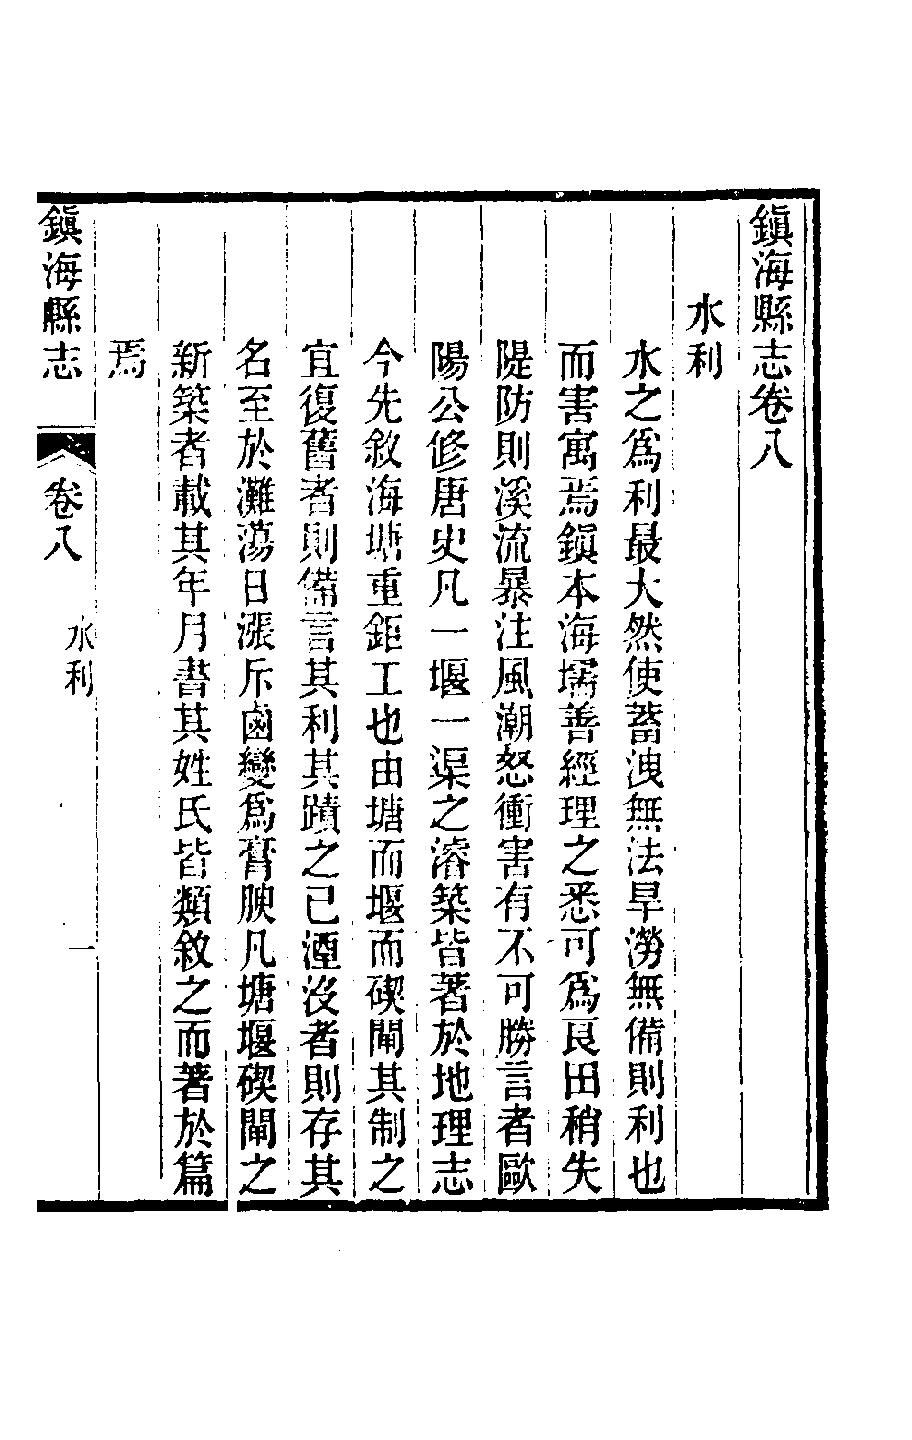 鎮海縣志卷八
水利
水之爲利最大然使蓄洩無法旱澇無備則利也
而害寓焉鎮本海壖善經理之悉可爲良田稍失
隄防則溪流暴注風潮怒衝害有不可勝言者歐
陽公修唐史凡一堰一渠之濬築皆著於地理志
今先敘海塘重鉅工也由塘而堰而碶閘其制之
宜復舊者則備言其利其蹟之已湮沒者則存其
名至於灘蕩日漲斥鹵變爲膏腴凡塘堰碶閘之
新築者載其年月書其姓氏皆類敘之而著於篇
焉
鎮海縣志
卷八
水利
一